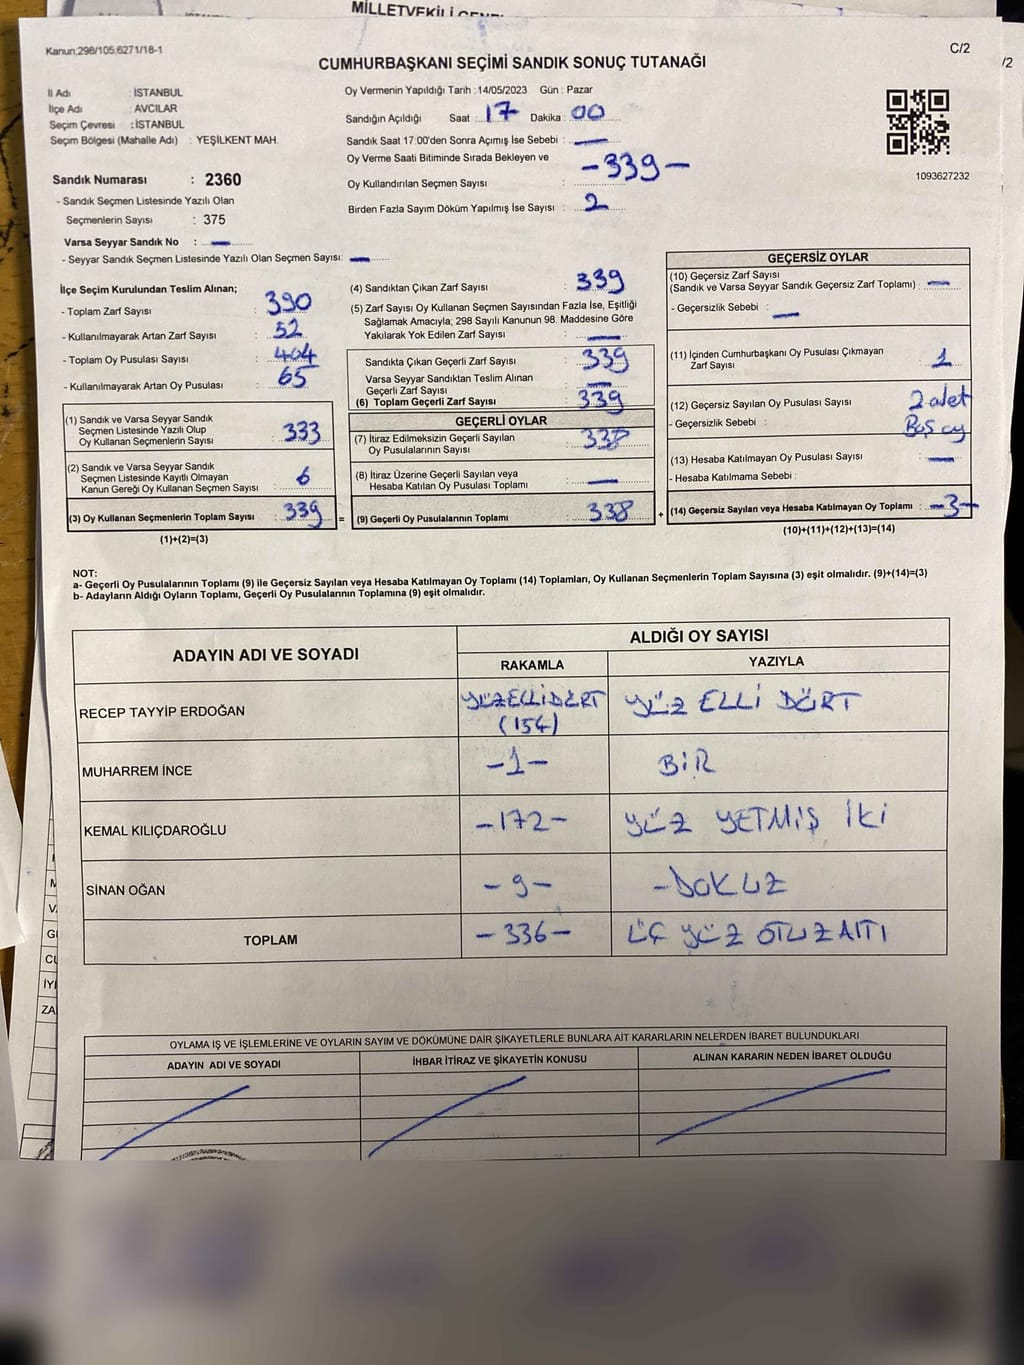 MİLLETVEKİLİ GENEL
Kanun;298/105;6271/18-1
C/2
/2
CUMHURBAŞKANI SEÇİMİ SANDIK SONUÇ TUTANAĞI
İl Adı : İSTANBUL
İlçe Adı : AVCILAR
Seçim Çevresi : İSTANBUL
Seçim Bölgesi (Mahalle Adı) : YEŞİLKENT MAH.
Oy Vermenin Yapıldığı Tarih : 14/05/2023 Gün : Pazar
Sandığın Açıldığı Saat : 17 Dakika : 00
Sandık Saat 17:00'den Sonra Açımış İse Sebebi : —
Oy Verme Saati Bitiminde Sırada Bekleyen ve
Oy Kullandırılan Seçmen Sayısı : -339-
Birden Fazla Sayım Döküm Yapılmış İse Sayısı : 2
1093627232
Sandık Numarası : 2360
- Sandık Seçmen Listesinde Yazılı Olan
Seçmenlerin Sayısı : 375
Varsa Seyyar Sandık No : —
- Seyyar Sandık Seçmen Listesinde Yazılı Olan Seçmen Sayısı: —
İlçe Seçim Kurulundan Teslim Alınan;
- Toplam Zarf Sayısı : 390
- Kullanılmayarak Artan Zarf Sayısı : 52
- Toplam Oy Pusulası Sayısı : 404
- Kullanılmayarak Artan Oy Pusulası : 65
(1) Sandık ve Varsa Seyyar Sandık
Seçmen Listesinde Yazılı Olup
Oy Kullanan Seçmenlerin Sayısı : 333
(2) Sandık ve Varsa Seyyar Sandık
Seçmen Listesinde Kayıtlı Olmayan
Kanun Gereği Oy Kullanan Seçmen Sayısı : 6
(3) Oy Kullanan Seçmenlerin Toplam Sayısı : 339 =
(1)+(2)=(3)
(4) Sandıktan Çıkan Zarf Sayısı : 339
(5) Zarf Sayısı Oy Kullanan Seçmen Sayısından Fazla İse, Eşitliği
Sağlamak Amacıyla; 298 Sayılı Kanunun 98. Maddesine Göre
Yakılarak Yok Edilen Zarf Sayısı : —
Sandıkta Çıkan Geçerli Zarf Sayısı : 339
Varsa Seyyar Sandıktan Teslim Alınan
Geçerli Zarf Sayısı : —
(6) Toplam Geçerli Zarf Sayısı : 339
GEÇERLİ OYLAR
(7) İtiraz Edilmeksizin Geçerli Sayılan
Oy Pusulalarının Sayısı : 338
(8) İtiraz Üzerine Geçerli Sayılan veya
Hesaba Katılan Oy Pusulası Toplamı : —
(9) Geçerli Oy Pusulalarının Toplamı : 338 +
GEÇERSİZ OYLAR
(10) Geçersiz Zarf Sayısı
(Sandık ve Varsa Seyyar Sandık Geçersiz Zarf Toplamı) : —
- Geçersizlik Sebebi : —
(11) İçinden Cumhurbaşkanı Oy Pusulası Çıkmayan
Zarf Sayısı : 1
(12) Geçersiz Sayılan Oy Pusulası Sayısı : 2 adet
- Geçersizlik Sebebi : Boş oy
(13) Hesaba Katılmayan Oy Pusulası Sayısı : —
- Hesaba Katılmama Sebebi :
(14) Geçersiz Sayılan veya Hesaba Katılmayan Oy Toplamı : -3-
(10)+(11)+(12)+(13)=(14)
NOT:
a- Geçerli Oy Pusulalarının Toplamı (9) ile Geçersiz Sayılan veya Hesaba Katılmayan Oy Toplamı (14) Toplamları, Oy Kullanan Seçmenlerin Toplam Sayısına (3) eşit olmalıdır. (9)+(14)=(3)
b- Adayların Aldığı Oyların Toplamı, Geçerli Oy Pusulalarının Toplamına (9) eşit olmalıdır.
ADAYIN ADI VE SOYADI
ALDIĞI OY SAYISI
RAKAMLA YAZIYLA
RECEP TAYYİP ERDOĞAN YÜZELLİDÖRT (154) YÜZ ELLİ DÖRT
MUHARREM İNCE -1- BİR
KEMAL KILIÇDAROĞLU -172- YÜZ YETMİŞ İKİ
SİNAN OĞAN -9- -DOKUZ
TOPLAM -336- ÜÇ YÜZ OTUZ ALTI
OYLAMA İŞ VE İŞLEMLERİNE VE OYLARIN SAYIM VE DÖKÜMÜNE DAİR ŞİKAYETLERLE BUNLARA AİT KARARLARIN NELERDEN İBARET BULUNDUKLARI
ADAYIN ADI VE SOYADI İHBAR İTİRAZ VE ŞİKAYETİN KONUSU ALINAN KARARIN NEDEN İBARET OLDUĞU